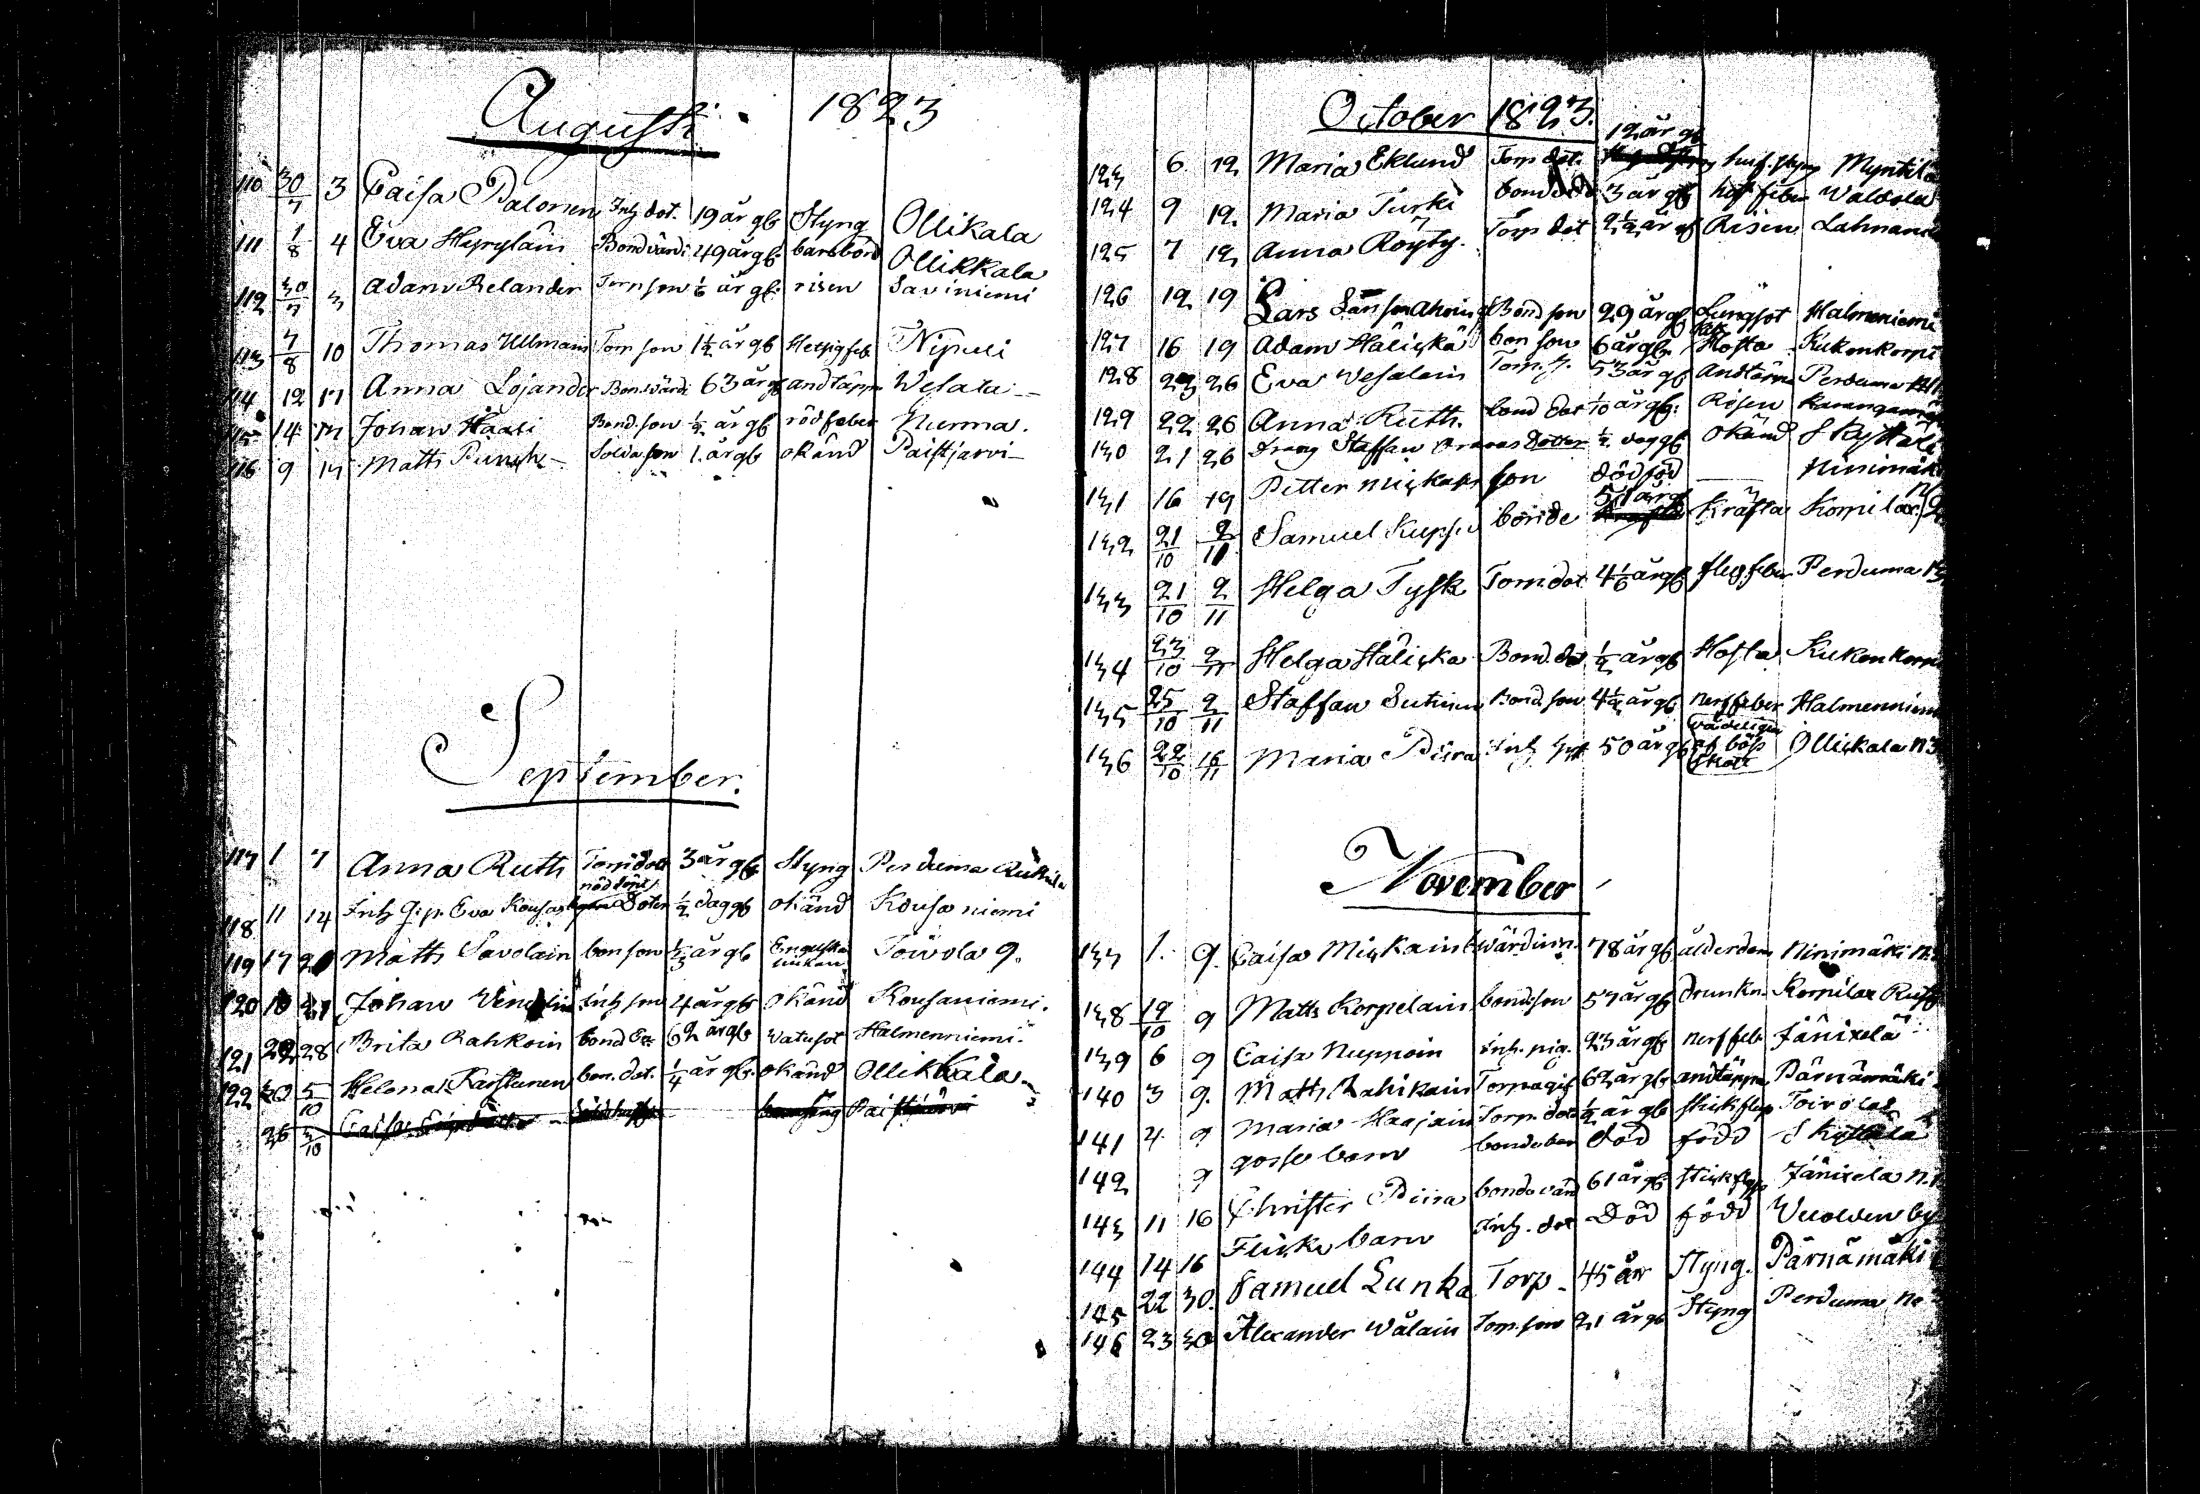 Augusti 1823
110 30/7 3 Caisa Palonen Inh dot. 19 år gl Styng Ollikala
111 1/8 4 Eva Hyryläin Bondvärdi 49 år gl. barsbörd Ollikkala
112 30/7 3 Adam Relander Torp son 1/6 år gl. risen Saviniemi
113 7/8 10 Thomas Ullmain Torp son 1 1/2 år gl Hetsig feb Nipuli
114 12 17 Anna Lojander Bondvärdi 63 år gl andtäppa Wesala
115 14 17 Johan Haali Bond. son 1/2 år gl rödfeber Nurma.
116 9 17 Matts Pursh Solda son 1. år gl okänd Paistjärvi
September.
117 1 7 Anna Ruth Torp dott 3 år gl Styng Perduma
118 11 14 Inh Eva Kousa doter 1/2 dag gl okänd Kousaniemi
119 17 21 Matts Savolain bon son 1/3 år gl Engelska Toivola 9.
120 18 21 Johan Inh son 4 år gl okänd Kousaniemi.
121 22 28 Brita Rahkoin bond 62 år gl Watusot Halmenniemi.
122 30 5/10 Helena Karstunen bon. dot. 1/4 år gl. okänd Ollikkala
26 3/10 Caisa
October 1823.
12 år gl
123 6. 12 Maria Eklund Torp dot. Myntilä
124 9 12. Maria Turki bond dot 3 år gl het feber Walkola
125 7 12 Anna Röyty. Torp dot 2 1/2 år gl Risen
126 12 19 Lars Larsson Bond son 29 år gl Lungsot Halmeniemi
127 16 19 Adam Häliskä bon son 6 år gl. Hosta Kukonkorpi
128 23 26 Eva Vesalain Torp. 53 år gl Andtäppa Perduma
129 22 26 Anna Ruth. bond dot 1/10 år gl. Risen
130 21 26 dräng Staffan dotter 1/2 dag gl okänd Skyttälä
131 16 19 Petter son dödföd Ninimäki
132 21/10 2/11 Samuel Kupsu bonde 51 år gl Kräfta Kompilax
133 21/10 2/11 Helga Tysk Torp. dot 4 1/6 år gl Perduma
134 23/10 2/11 Helga Häliskä Bond. dot 1/2 år gl Hosta Kukonkorpi
135 25/10 2/11 Staffan Sutinen Bond son 4 1/2 år gl nerffeber Halmenniemi
136 22/10 16/11 Maria Piira Inh 50 år gl vådeligen af böss skott Ollickala N3
November
137 1. 9. Caisa Miskain wärdinn. 78 år gl ålderdom Ninimäki
138 19/10 9 Matts Korpelain bondson 57 år gl drunkn. Kompilax
139 6 9 Caisa Nuppoin Inh. pig. 23 år gl nerffeb. Jänixelä
140 3 9. Matts Rahikain Torpagif 62 år gl andtäppa Pärnämäki
141 4 9 Maria Haajain Torp. dot 1/2 år gl stickflug Toivola
142 9 gosse barn bondebar död född Skyttälä
143 11 16 Christer Piira bonde värd 61 år gl stickflug Jänixela
144 14 16 Flicke barn Inh. dot Död född Wuolden by
145 22 30. Samuel Lunka Torp. 45 år Styng. Pärnämäki
146 23 30 Alexander Wälain Torp. son 21 år gl Styng Perduma